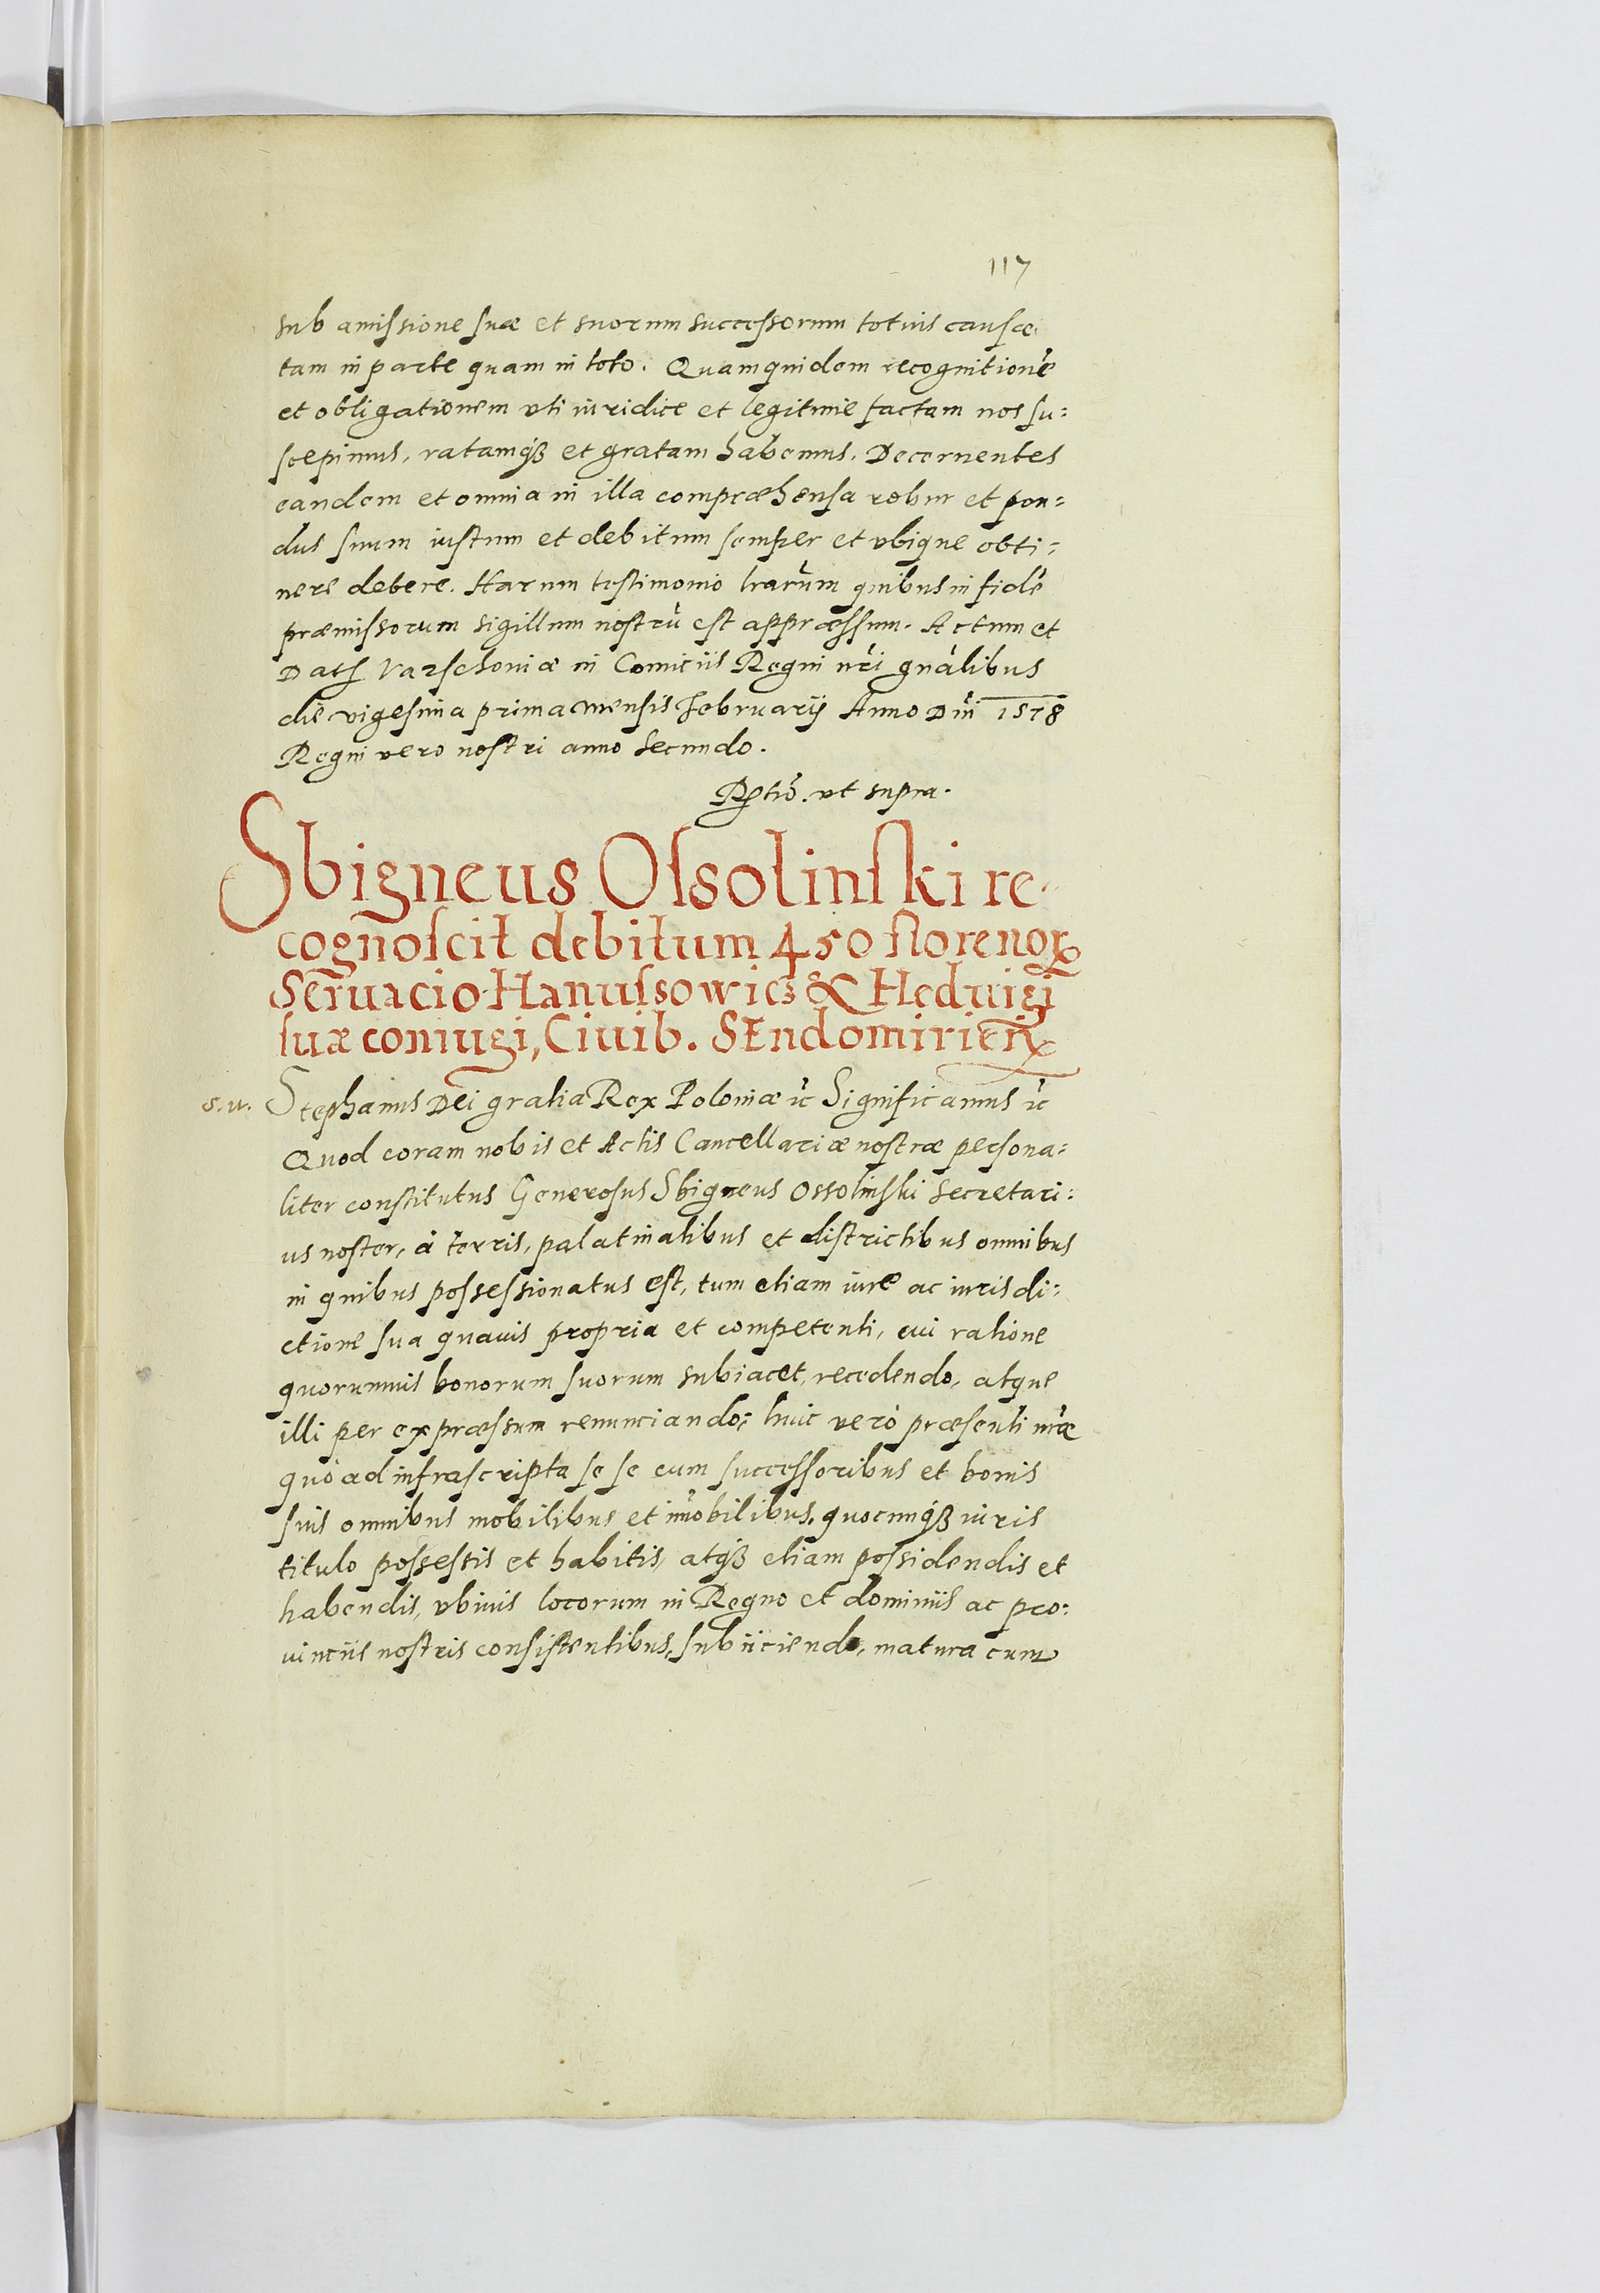 117
sub amissione suæ et suorum successorum totius causæ
tam in parte quam in toto. Quamquidem recognitionẽ
et obligationem vti iuridice et legitime factam nos su:
scepimus, ratamq́ꝫ et gratam habemus. Decernentes
eandem et omnia in illa compræhensa robur et pon:
dus suum iustum et debitum semper et vbique obti:
nere debere. Harum testimonio lrarum quibus in fidẽ
præmissorum sigillum nostrũ est appræssum. Actum et
Dat. Varschoviæ in Comitiis Regni nr̃i gnãlibus
die vigesima prima mensis Februarij Anno Dni 1578
Regni vero nostri anno secundo.
Rtio. vt supra.
Sbigneus Ossolinski re-
cognoscit debitum 450 florenoꝝ
Seruacio Hanussowicz & Heduigi
suæ coniugi, Ciuib. SEndomirien̄
s.u. Stephanus Dei gratia Rex Poloniæ ⁊c Significamus ⁊c
Quod coram nobis et Actis Cancellariæ nostræ persona:
liter constitutus Generosus Sbigneus Ossolinski Secretari:
us noster, à terris, palatinatibus et districtibus omnibus
in quibus possessionatus est, tum etiam iure ac iurisdi:
ctione sua quauis propria et competenti, cui ratione
quorumuis bonorum suorum subiacet, recedendo, atque
illi per expræssum renunciando; huic verò præsenti nr̃æ
quò ad infrascripta se se cum successoribus et bonis
suis omnibus mobilibus et im̃obilibus, quocunq́ꝫ iuris
titulo possessis et habitis, atq́ꝫ etiam possidendis et
habendis, vbiuis locorum in Regno et dominiis ac pro:
uinciis nostris consistentibus, subiiciendo, matura cum